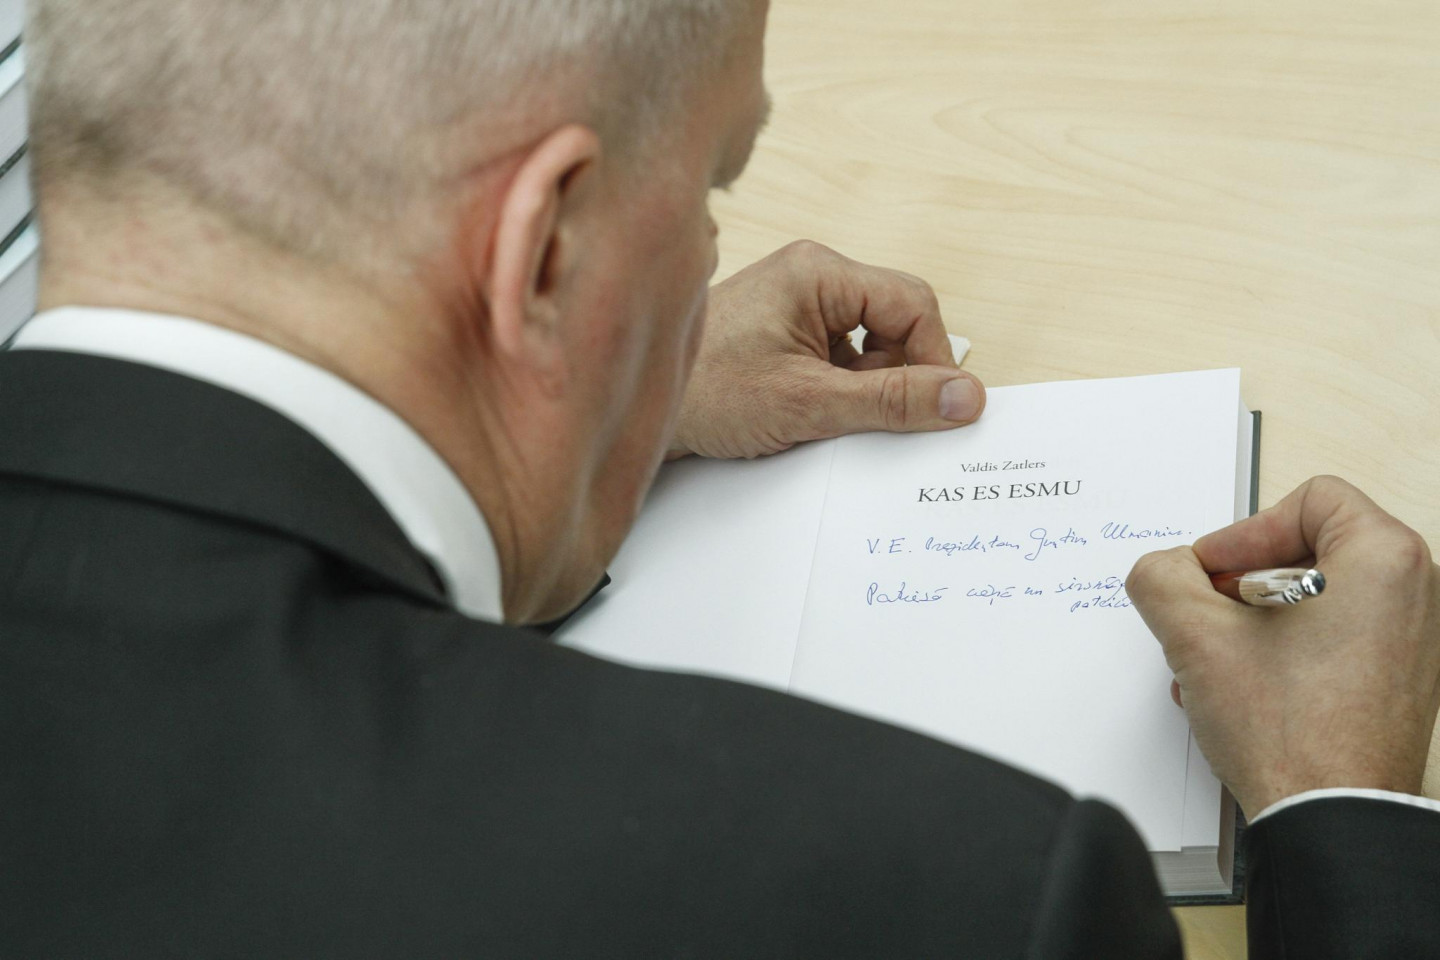 Valdis Zatlers
KAS ES ESMU
V. E. Prezidentam Guntim Ulmanim.
Patiesā cieņā un sirsnīgā